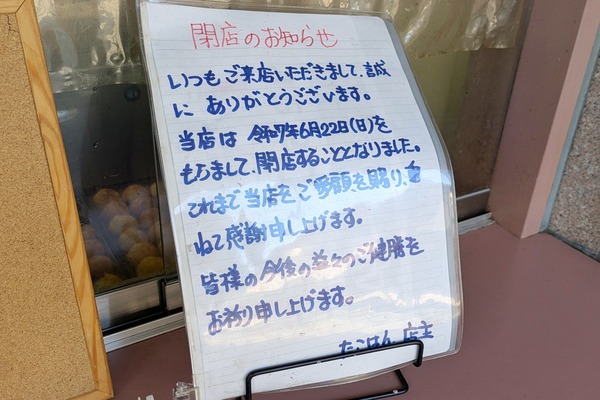 閉店のお知らせ
いつもご来店いただきまして、誠
にありがとうございます。
当店は 令和7年6月22日(日)を
もちまして、閉店することとなりました。
これまで当店をご愛顧を賜り、重
ねて感謝申し上げます。
皆様の今後の益々のご健勝を
お祈り申し上げます。
たこはん 店主